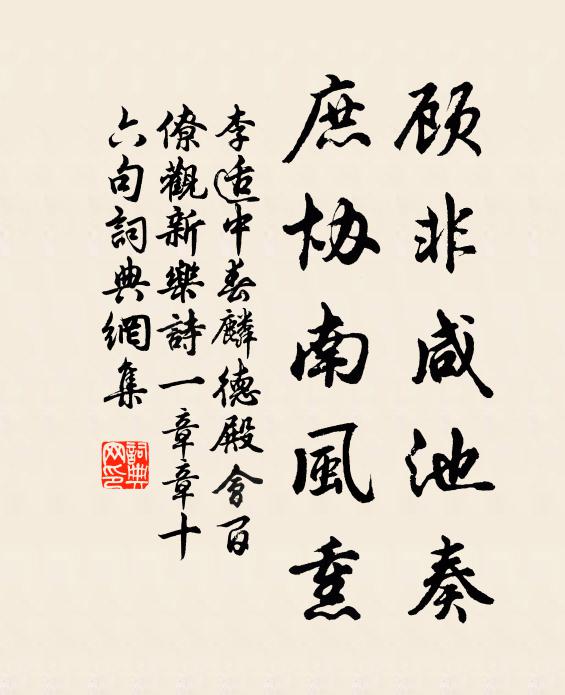 顧非咸池奏
庶协南風熏
李适中春麟德殿會百
僚觀新樂詩一章章十
六句詞典網集
詞典
网印